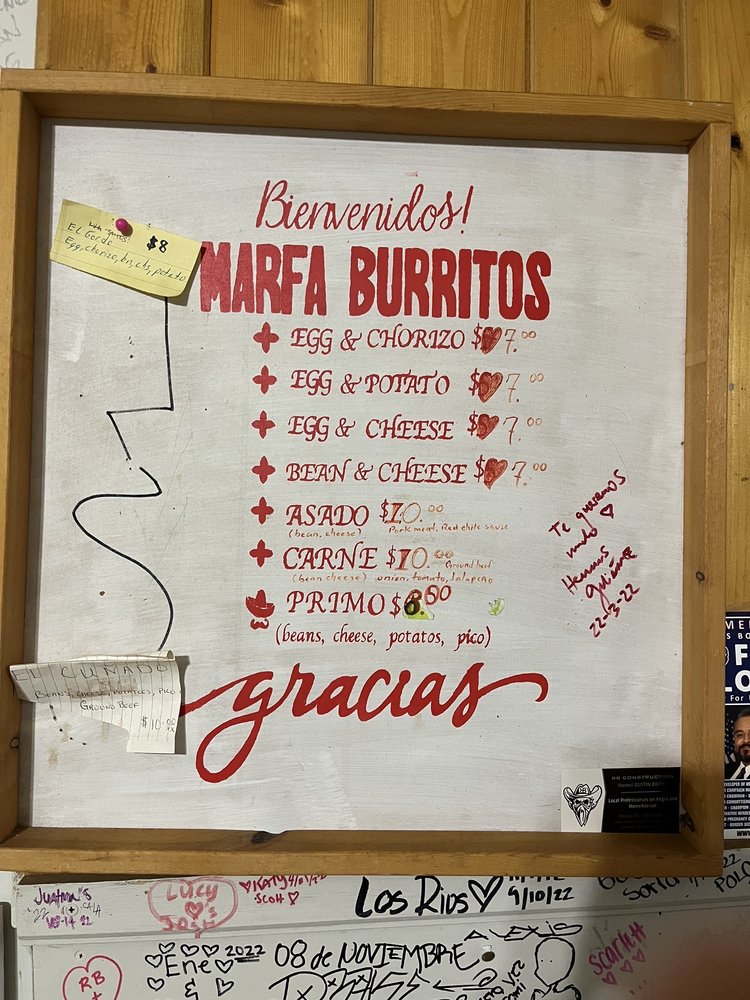 Bienvenidos!
$8
El Gordo
Egg, chorizo, bn, chs, potato
MARFA BURRITOS
EGG & CHORIZO $ 7.00
EGG & POTATO $ 7.00
EGG & CHEESE $ 7.00
BEAN & CHEESE $ 7.00
ASADO $10.00
(bean, cheese) Pork meat, Red chile sause
CARNE $10.00 Ground beef
(bean cheese) onion, tomato, Jalapeño
PRIMO $8.00
(beans, cheese, potatoes, pico)
gracias
Te queremos
mucho
22-3-22
EL CUÑADO
BEANS, CHEESE, POTATOES, PICO
GROUND BEEF
$10.00
RG CONSTRUCTION
Local Professionals on Angi and
HomeAdvisor
F
LO
For
Lucy
Josh
KATY
SCOTT
Los Rios
9/10/22
Ene 2022
&
08 de NOVIEMBRE
ALEXIS
Scarlett
RB
+